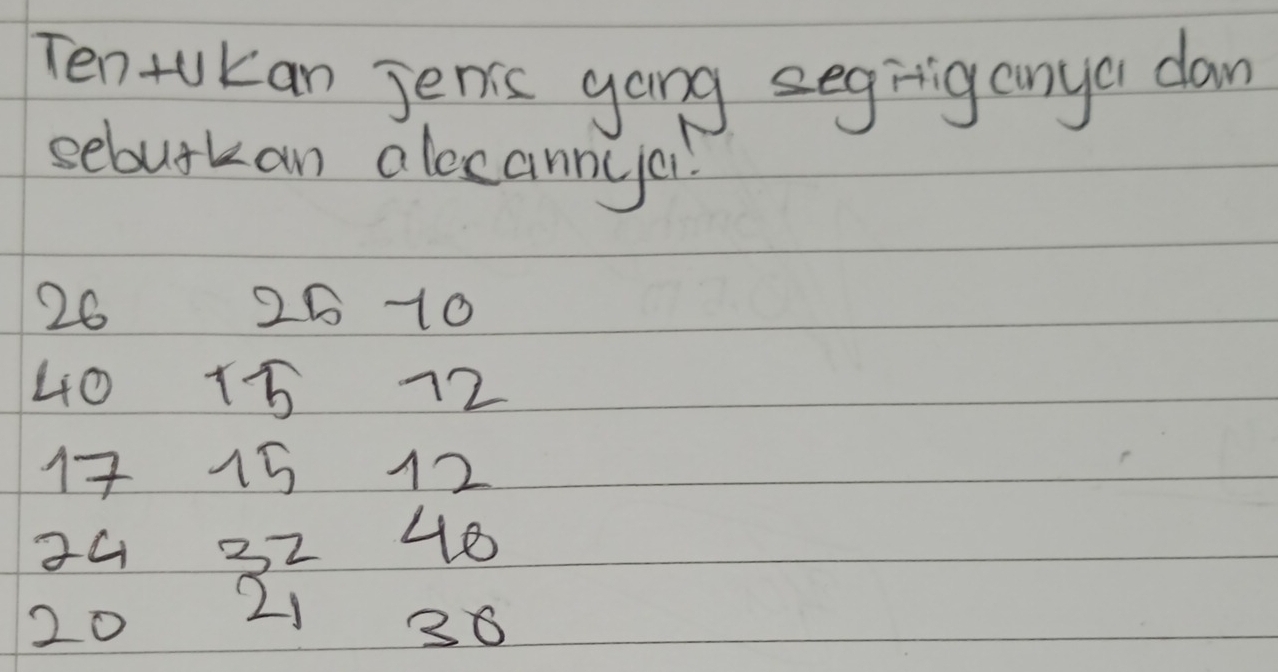 Tentukan jenis yang segitiganya dan
sebutkan alasannya!
26 25 10
40 15 12
17 15 12
24 32 40
20 21 30